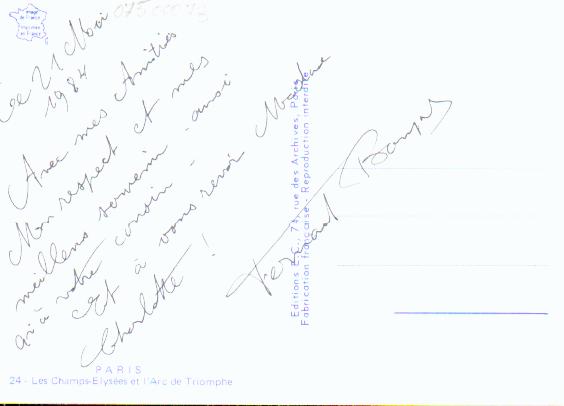 Image
de France
07500078
Le 21 Mai
1984
Avec mes Amitiés
Mon respect et mes
meilleurs souvenir - ainsi
qu'à votre cousin -
Et à vous revoir Madame
Charlotte !
Fernand
Editions E.C., 74, rue des Archives, Paris
Fabrication française - Reproduction interdite
PARIS
24 - Les Champs-Elysées et l'Arc de Triomphe